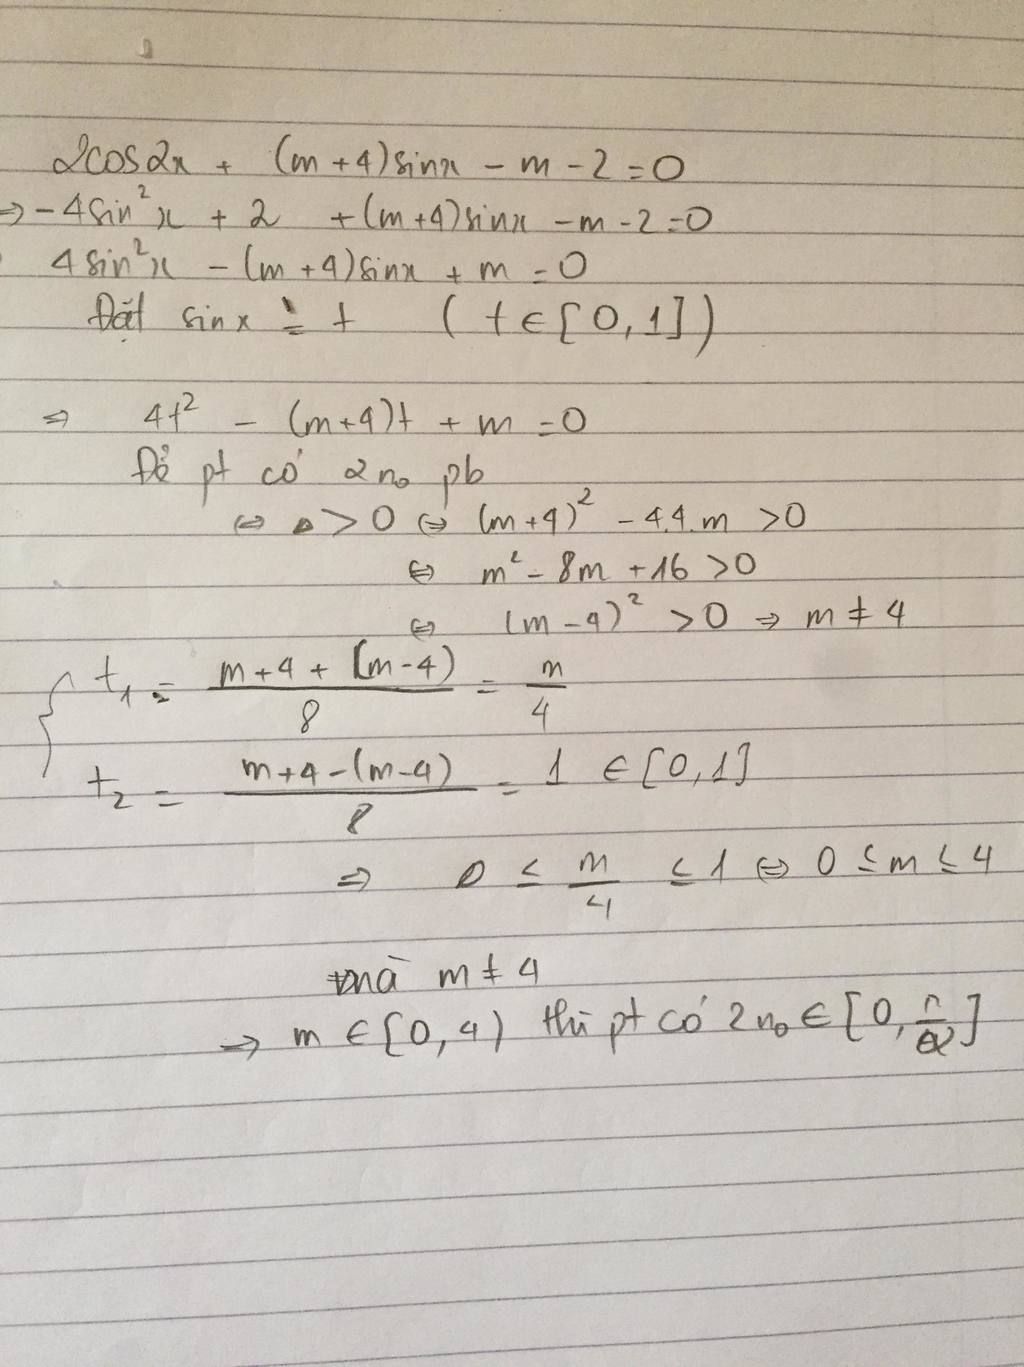 2cos2x + (m+4)sinx - m - 2 = 0
⇒ -4sin²x + 2 + (m+4)sinx - m - 2 = 0
4sin²x - (m+4)sinx + m = 0
Đặt sinx = t (t ∈ [0,1])
⇒ 4t² - (m+4)t + m = 0
Để pt có 2 no pb
⇔ Δ > 0 ⇔ (m+4)² - 4.4.m > 0
⇔ m² - 8m + 16 > 0
⇔ (m-4)² > 0 ⇒ m ≠ 4
t₁ = \frac{m+4+(m-4)}{8} = \frac{m}{4}
t₂ = \frac{m+4-(m-4)}{8} = 1 ∈ [0,1]
⇒ 0 ≤ \frac{m}{4} ≤ 1 ⇔ 0 ≤ m ≤ 4
mà m ≠ 4
⇒ m ∈ [0,4) thì pt có 2 no ∈ [0, \frac{π}{2}]